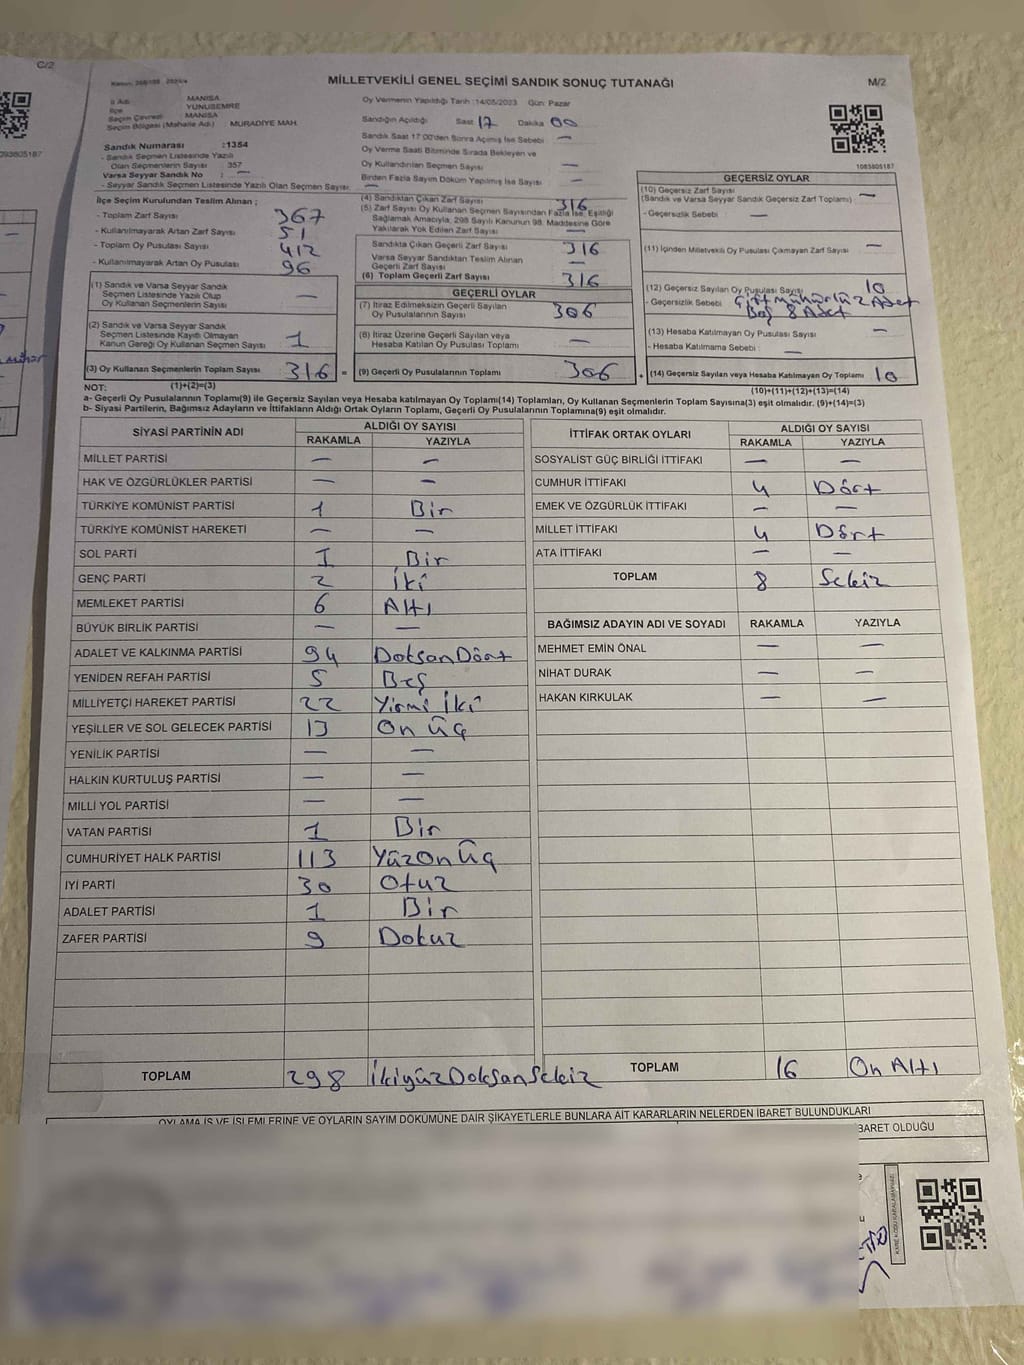 C/2
MİLLETVEKİLİ GENEL SEÇİMİ SANDIK SONUÇ TUTANAĞI
M/2
İl Adı : MANİSA
İlçe : YUNUSEMRE
Seçim Çevresi : MANİSA
Seçim Bölgesi (Mahalle Adı) : MURADİYE MAH.
Sandık Numarası :1354
- Sandık Seçmen Listesinde Yazılı
Olan Seçmenlerin Sayısı 357
Varsa Seyyar Sandık No : —
- Seyyar Sandık Seçmen Listesinde Yazılı Olan Seçmen Sayısı: —
Oy Vermenin Yapıldığı Tarih :14/05/2023 Gün: Pazar
Sandığın Açıldığı Saat 17 Dakika 00
Sandık Saat 17:00'den Sonra Açılmış İse Sebebi —
Oy Verme Saati Bitiminde Sırada Bekleyen ve
Oy Kullandırılan Seçmen Sayısı —
Birden Fazla Sayım Döküm Yapılmış İse Sayısı —
1083805187
093805187
İlçe Seçim Kurulundan Teslim Alınan ;
- Toplam Zarf Sayısı 367
- Kullanılmayarak Artan Zarf Sayısı 51
- Toplam Oy Pusulası Sayısı 412
- Kullanılmayarak Artan Oy Pusulası 96
(1) Sandık ve Varsa Seyyar Sandık
Seçmen Listesinde Yazılı Olup
Oy Kullanan Seçmenlerin Sayısı —
(2) Sandık ve Varsa Seyyar Sandık
Seçmen Listesinde Kayıtlı Olmayan
Kanun Gereği Oy Kullanan Seçmen Sayısı 1
(3) Oy Kullanan Seçmenlerin Toplam Sayısı 316 =
(4) Sandıktan Çıkan Zarf Sayısı 316
(5) Zarf Sayısı Oy Kullanan Seçmen Sayısından Fazla İse, Eşitliği
Sağlamak Amacıyla, 298 Sayılı Kanunun 98. Maddesine Göre
Yakılarak Yok Edilen Zarf Sayısı —
Sandıkta Çıkan Geçerli Zarf Sayısı 316
Varsa Seyyar Sandıktan Teslim Alınan
Geçerli Zarf Sayısı —
(6) Toplam Geçerli Zarf Sayısı 316
GEÇERLİ OYLAR
(7) İtiraz Edilmeksizin Geçerli Sayılan
Oy Pusulalarının Sayısı 306
(8) İtiraz Üzerine Geçerli Sayılan veya
Hesaba Katılan Oy Pusulası Toplamı —
(9) Geçerli Oy Pusulalarının Toplamı 306 +
GEÇERSİZ OYLAR
(10) Geçersiz Zarf Sayısı
(Sandık ve Varsa Seyyar Sandık Geçersiz Zarf Toplamı) —
- Geçersizlik Sebebi : —
(11) İçinden Milletvekili Oy Pusulası Çıkmayan Zarf Sayısı —
(12) Geçersiz Sayılan Oy Pusulası Sayısı 10
- Geçersizlik Sebebi : Çift Mühürlü 2 Adet
Boş 8 Adet
(13) Hesaba Katılmayan Oy Pusulası Sayısı —
- Hesaba Katılmama Sebebi : —
(14) Geçersiz Sayılan veya Hesaba Katılmayan Oy Toplamı 10
NOT: (1)+(2)=(3) (10)+(11)+(12)+(13)=(14)
a- Geçerli Oy Pusulalarının Toplamı(9) ile Geçersiz Sayılan veya Hesaba katılmayan Oy Toplamı(14) Toplamları, Oy Kullanan Seçmenlerin Toplam Sayısına(3) eşit olmalıdır. (9)+(14)=(3)
b- Siyasi Partilerin, Bağımsız Adayların ve İttifakların Aldığı Ortak Oyların Toplamı, Geçerli Oy Pusulalarının Toplamına(9) eşit olmalıdır.
SİYASİ PARTİNİN ADI ALDIĞI OY SAYISI
RAKAMLA YAZIYLA
MİLLET PARTİSİ — —
HAK VE ÖZGÜRLÜKLER PARTİSİ — —
TÜRKİYE KOMÜNİST PARTİSİ 1 Bir
TÜRKİYE KOMÜNİST HAREKETİ — —
SOL PARTİ 1 Bir
GENÇ PARTİ 2 İki
MEMLEKET PARTİSİ 6 Altı
BÜYÜK BİRLİK PARTİSİ — —
ADALET VE KALKINMA PARTİSİ 94 Doksan Dört
YENİDEN REFAH PARTİSİ 5 Beş
MİLLİYETÇİ HAREKET PARTİSİ 22 Yirmi İki
YEŞİLLER VE SOL GELECEK PARTİSİ 13 On Üç
YENİLİK PARTİSİ — —
HALKIN KURTULUŞ PARTİSİ — —
MİLLİ YOL PARTİSİ — —
VATAN PARTİSİ 1 Bir
CUMHURİYET HALK PARTİSİ 113 Yüz On Üç
İYİ PARTİ 30 Otuz
ADALET PARTİSİ 1 Bir
ZAFER PARTİSİ 9 Dokuz
TOPLAM 298 İkiyüz Doksan Sekiz
İTTİFAK ORTAK OYLARI ALDIĞI OY SAYISI
RAKAMLA YAZIYLA
SOSYALİST GÜÇ BİRLİĞİ İTTİFAKI — —
CUMHUR İTTİFAKI 4 Dört
EMEK VE ÖZGÜRLÜK İTTİFAKI — —
MİLLET İTTİFAKI 4 Dört
ATA İTTİFAKI — —
TOPLAM 8 Sekiz
BAĞIMSIZ ADAYIN ADI VE SOYADI RAKAMLA YAZIYLA
MEHMET EMİN ÖNAL — —
NİHAT DURAK — —
HAKAN KIRKULAK — —
TOPLAM 16 On Altı
OYLAMA İŞ VE İŞLEMLERİNE VE OYLARIN SAYIM DÖKÜMÜNE DAİR ŞİKAYETLERLE BUNLARA AİT KARARLARIN NELERDEN İBARET BULUNDUKLARI
BARET OLDUĞU